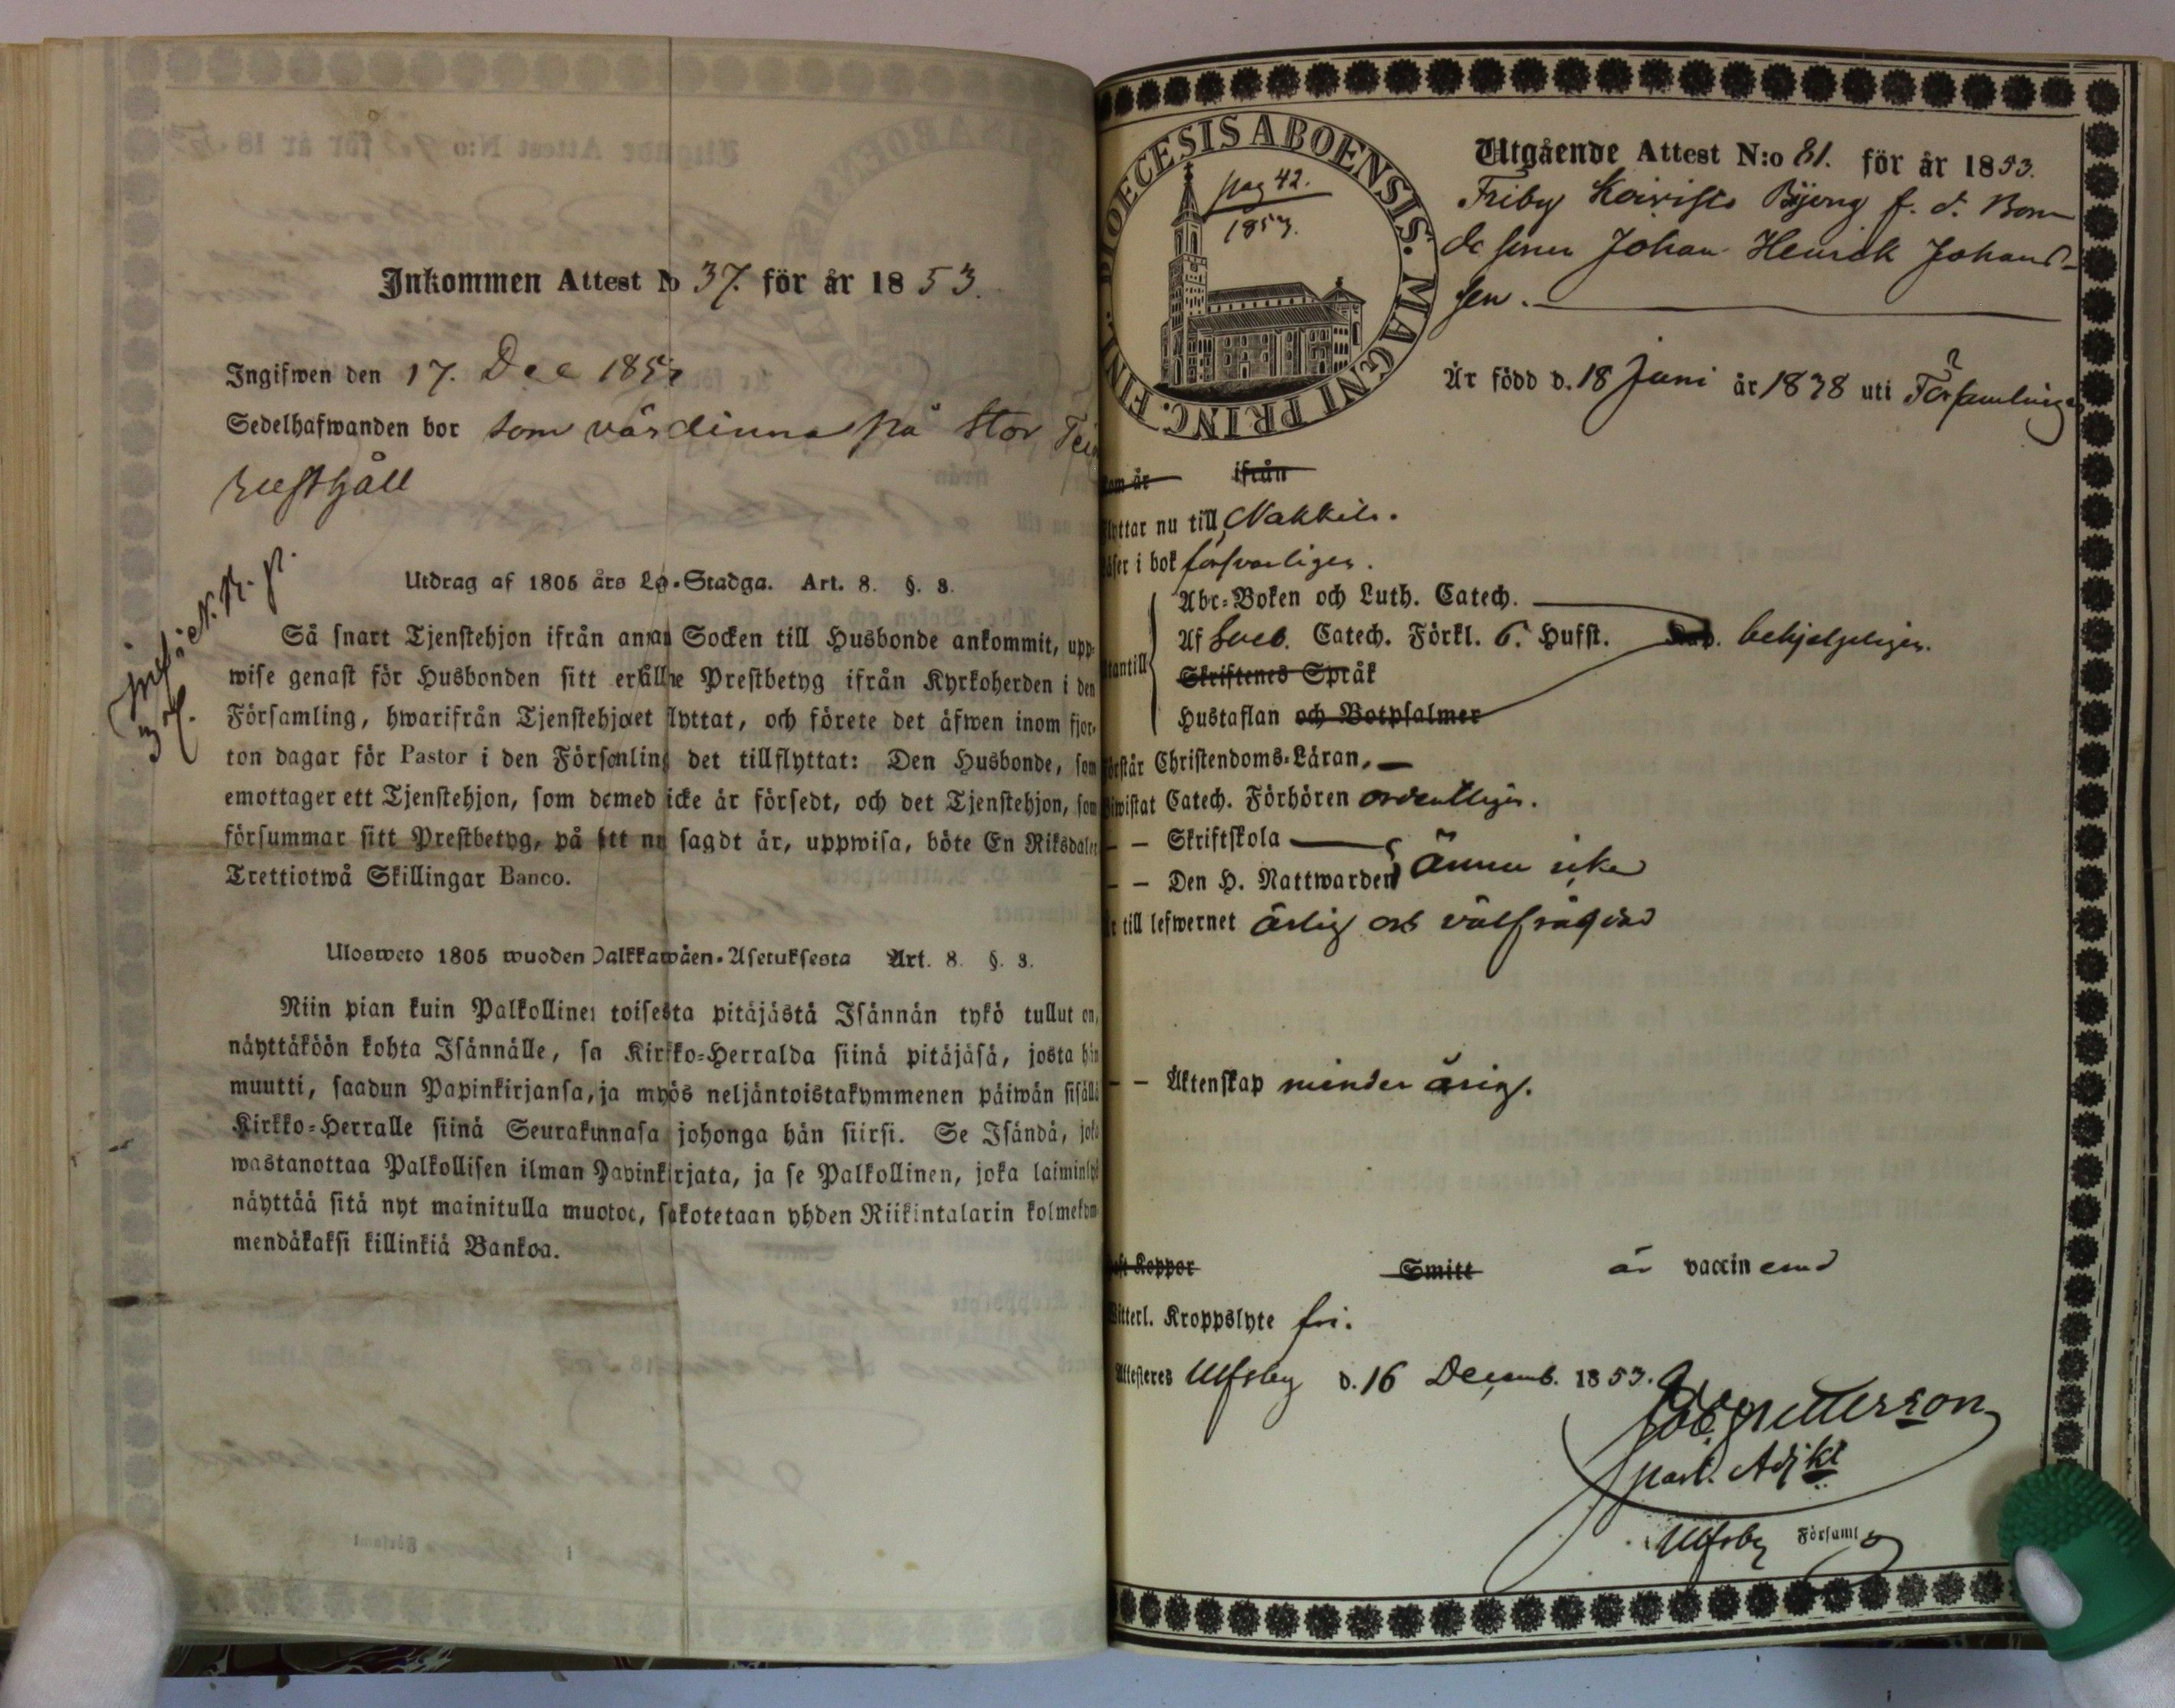 Inkommen Attest No 37. för år 1853.
Ingifwen den 17. Dec 1853
Sedelhafwanden bor som värdinna på Stor
rusthåll
inf. N. R. p.
Utdrag af 1805 års Lo-Stadga. Art. 8. §. 3.
Så snart Tjenstehjon ifrån annan Socken till Husbonde ankommit, upp-
wise genast för Husbonden sitt erhållne Prestbetyg ifrån Kyrkoherden i den
Församling, hwarifrån Tjenstehjonet flyttat, och förete det äfwen inom fjor-
ton dagar för Pastor i den Församling det tillflyttat: Den Husbonde, som
emottager ett Tjenstehjon, som dermed icke är försedt, och det Tjenstehjon, som
försummar sitt Prestbetyg, på sätt nu sagdt är, uppwisa, böte En Riksdaler
Trettiotwå Skillingar Banco.
Ulosweto 1805 wuoden Palkkawäen-Asetuksesta Art. 8. §. 3.
Niin pian kuin Palkollinen toisesta pitäjästä Isännän tykö tullut on,
näyttäköön kohta Isännälle, sen Kirkko-Herralda siinä pitäjäsä, josta hän
muutti, saadun Papinkirjansa, ja myös neljäntoistakymmenen päiwän sisällä
Kirkko-Herralle siinä Seurakunnasa johonga hän siirsi. Se Isändä, joka
wastanottaa Palkollisen ilman Papinkirjata, ja se Palkollinen, joka laiminlyö
näyttää sitä nyt mainitulla muotoa, sakotetaan yhden Riikintalarin kolmekym-
mendäkaksi killinkiä Bankoa.
DIOECESIS ABOENSIS. MAGNI PRINC. FINL.
pag 42.
1853.
Utgående Attest N:o 81. för år 1853.
Friby Koivisto Bijong f. d. Bon
de sonen Johan Henrik Johans-
son.
Är född d. 18 Juni år 1838 uti Församlingen
som är ifrån
flyttar nu till Nakkila.
läser i bok försvarligen.
Abc-Boken och Luth. Catech.
utantill Af Sveb. Catech. Förkl. 6. Hufst. behjelpeligen.
Skriftenes Språk
Hustaflan och Botpsalmer
förstår Christendoms-Läran,
biwistat Catech. Förhören ordentligen.
— — Skriftskola
— — Den H. Nattwarden ännu icke
är till lefwernet ärlig och välfrägdad
— — Äktenskap minder årig.
haft Koppor Smitt är vaccinerad
Witterl. Kroppslyte fri.
Attesteres Ulfsby d. 16 Decemb. 1853.
Petterson
past. Adjkt
Ulfsby Församl